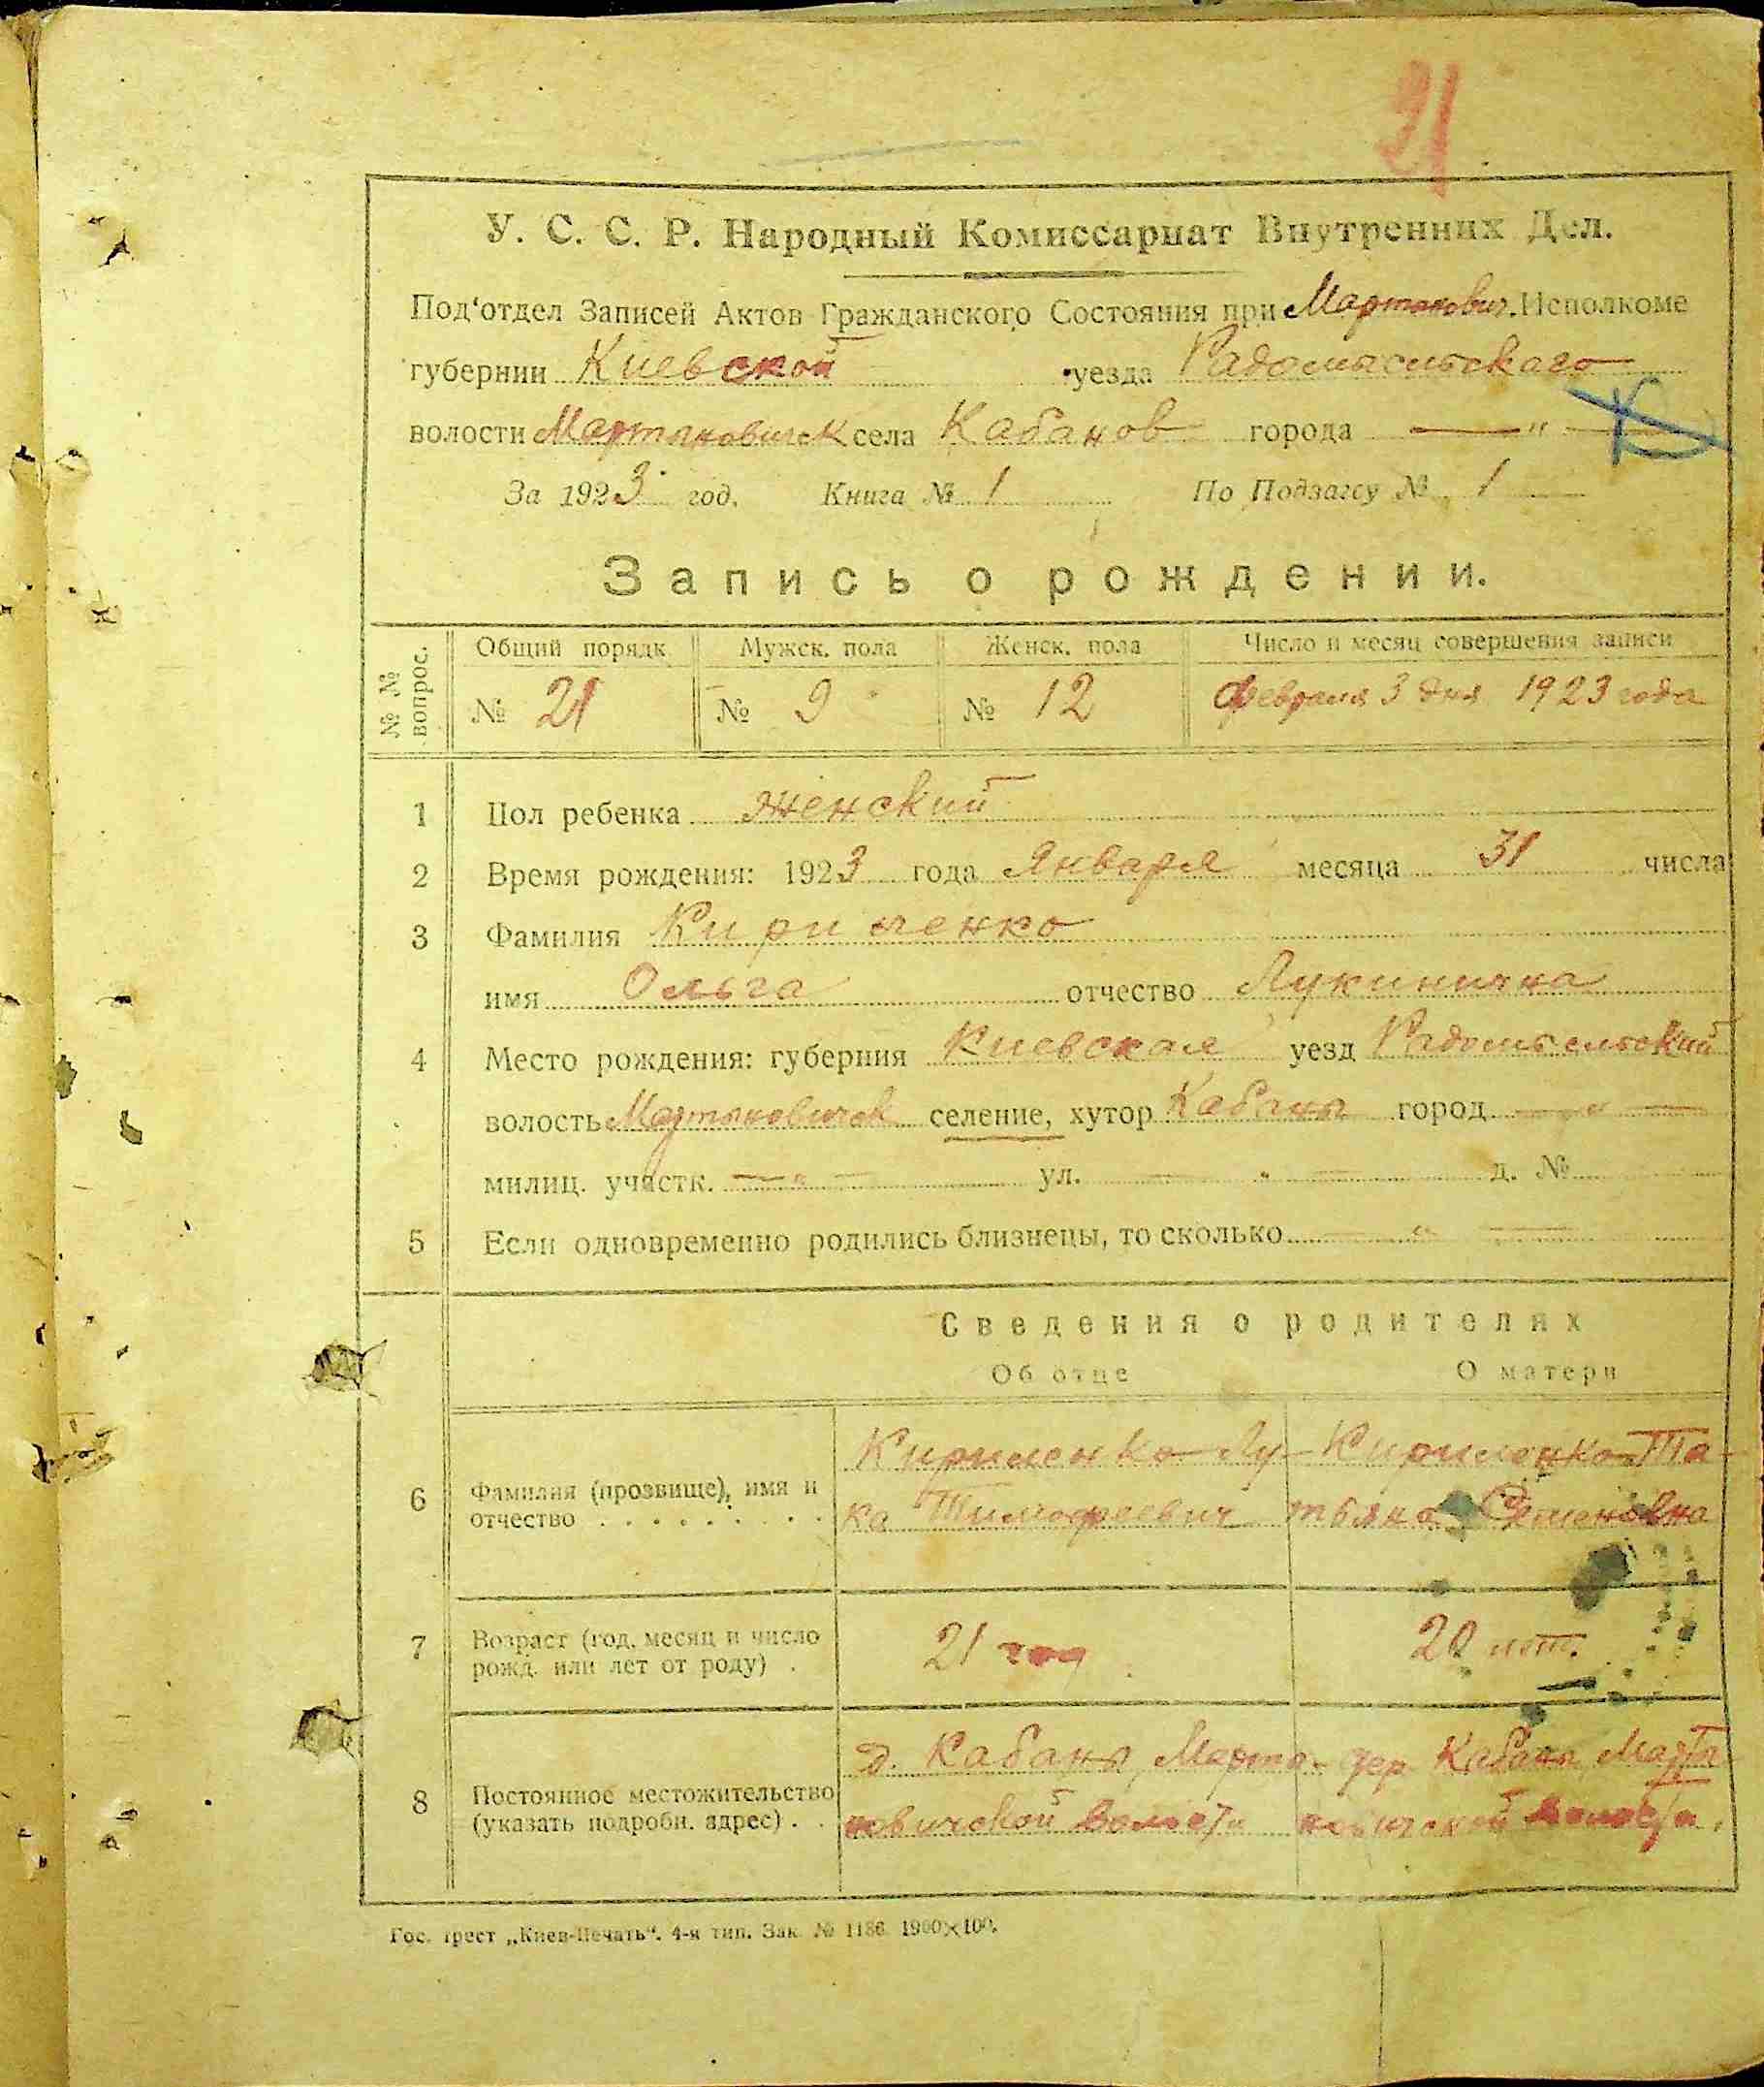 21
У. С. С. Р. Народный Комиссариат Внутренних Дел.
Под'отдел Записей Актов Гражданского Состояния при Мартынович. Исполкоме
губернии Киевской уезда Радомысльскаго
волости Мартыновичск села Кабанов города — " —
За 1923 год. Книга № 1 По Подзагсу № 1
Запись о рождении.
№ № вопрос. Общий порядк Мужск. пола Женск. пола Число и месяц совершения записи
№ 21 № 9 № 12 Февраля 3 дня 1923 года
1 Пол ребенка женский
2 Время рождения: 1923 года Января месяца 31 числа
3 Фамилия Кириленко
имя Ольга отчество Лукинична
4 Место рождения: губерния Киевская уезд Радомысльский
волость Мартыновичск селение, хутор Кабаны город — " —
милиц. участк. — " — ул. — " — д. №
5 Если одновременно родились близнецы, то сколько — " —
Сведения о родителях
Об отце О матери
6 Фамилия (прозвище), имя и отчество
Кириленко Лу-
ка Тимофеевич
Кириленко Та-
тьяна Семеновна
7 Возраст (год, месяц и число рожд. или лет от роду)
21 год
20 лет.
8 Постоянное местожительство (указать подробн. адрес)
д. Кабаны, Марты-
новичской волости
дер Кабаны Марты
новичской волости,
Гос. трест „Киев-Печать". 4-я тип. Зак. № 1186 1900×100.